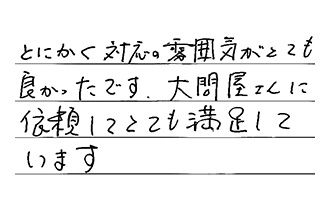 とにかく対応の雰囲気がとても
良かったです、大問屋さんに
依頼してとても満足して
います